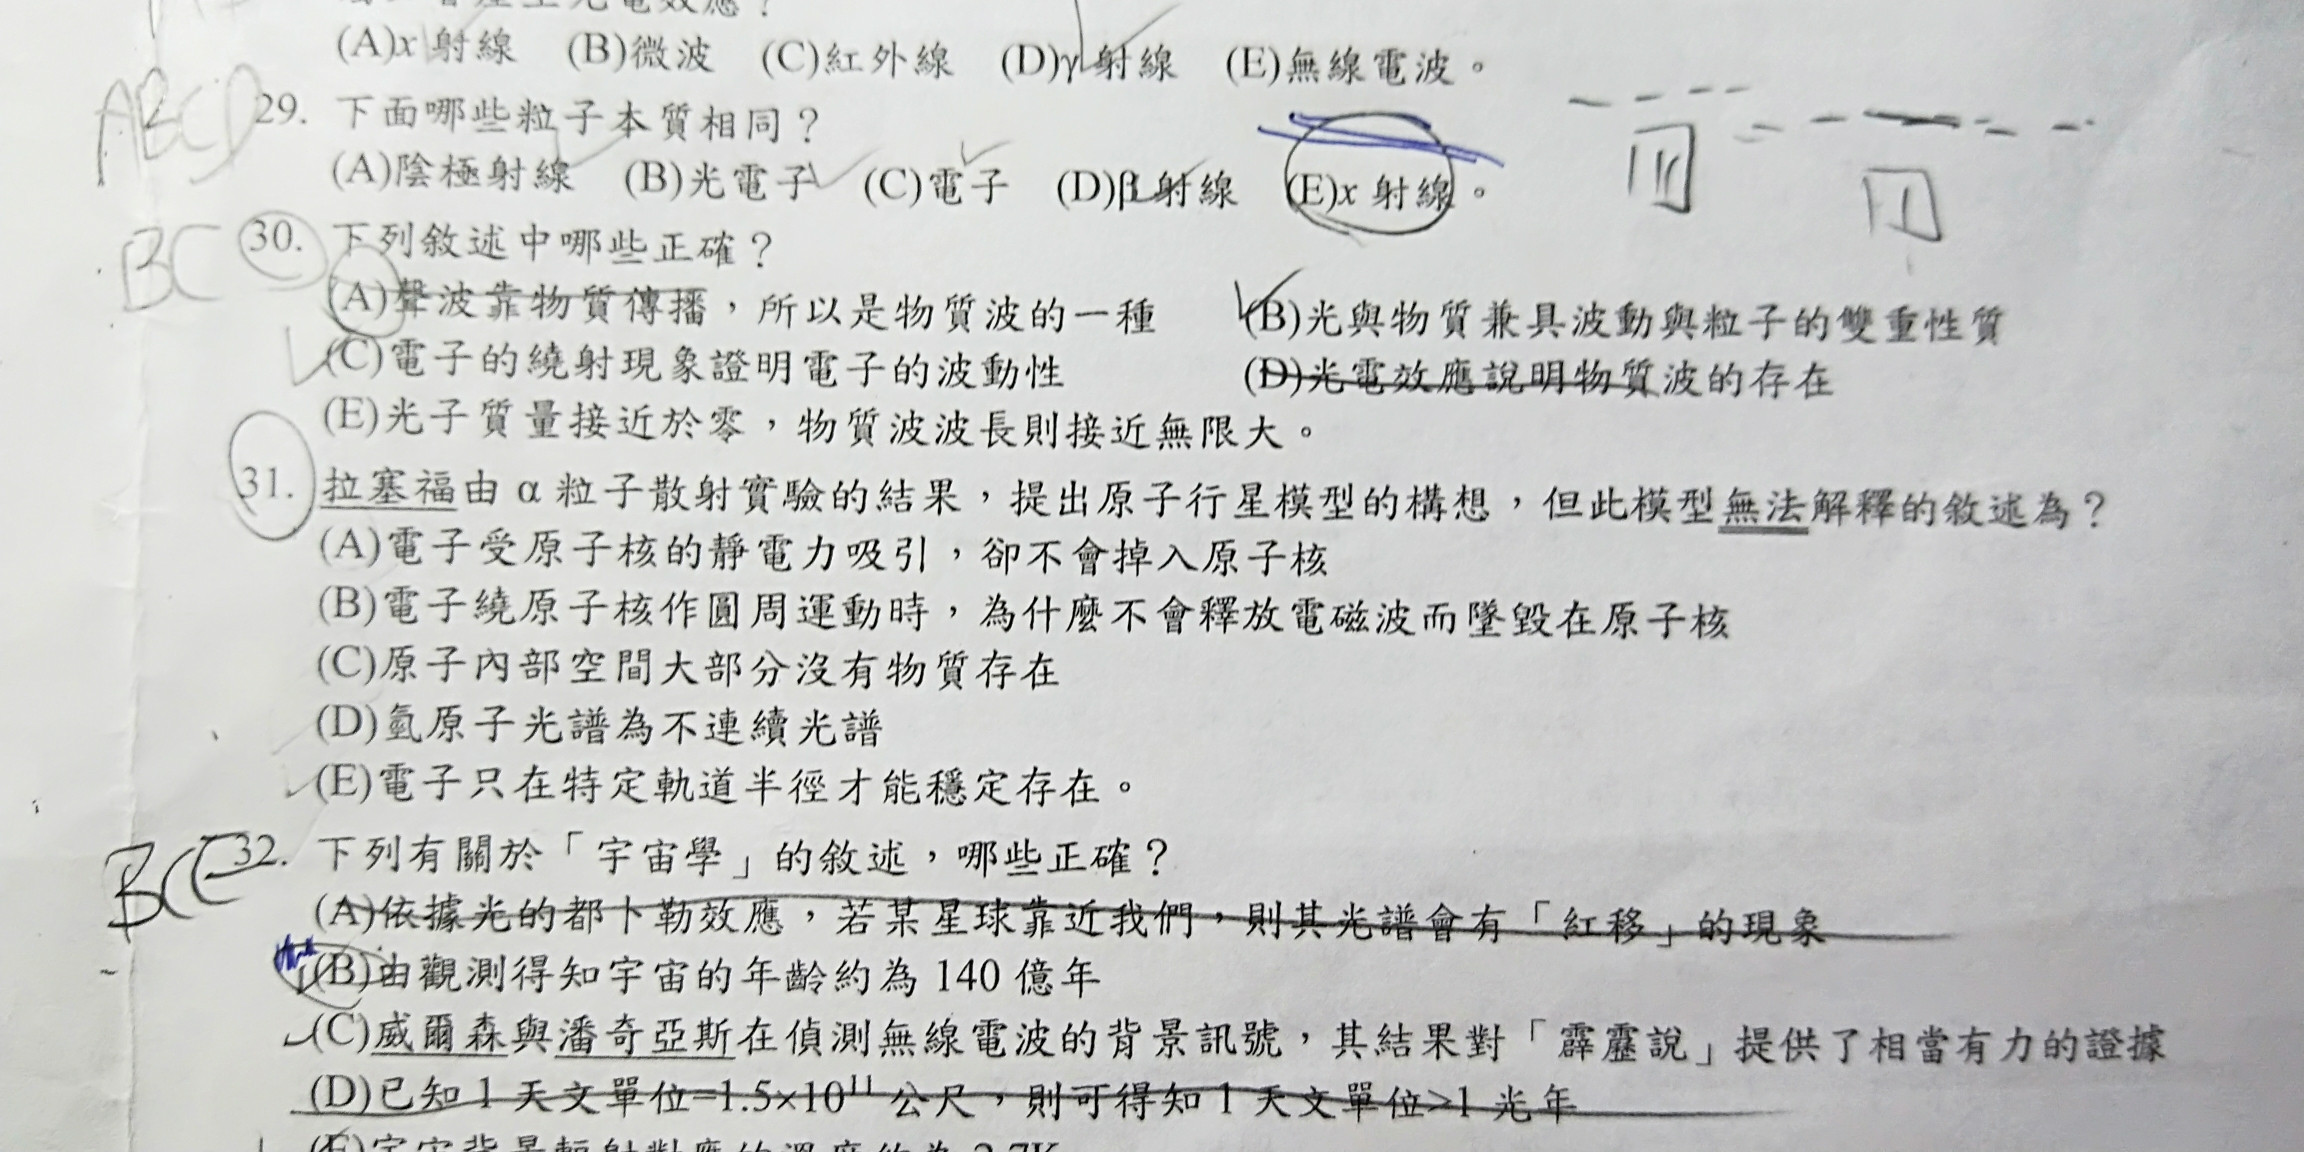 (A)x 射線 (B)微波 (C)紅外線 (D)γ 射線 (E)無線電波。
ABCD 29. 下面哪些粒子本質相同？
(A)陰極射線 (B)光電子 (C)電子 (D)β 射線 (E)x 射線。
BC 30. 下列敘述中哪些正確？
(A)聲波靠物質傳播，所以是物質波的一種 (B)光與物質兼具波動與粒子的雙重性質
(C)電子的繞射現象證明電子的波動性 (D)光電效應說明物質波的存在
(E)光子質量接近於零，物質波波長則接近無限大。
31. 拉塞福由 α 粒子散射實驗的結果，提出原子行星模型的構想，但此模型無法解釋的敘述為？
(A)電子受原子核的靜電力吸引，卻不會掉入原子核
(B)電子繞原子核作圓周運動時，為什麼不會釋放電磁波而墜毀在原子核
(C)原子內部空間大部分沒有物質存在
(D)氫原子光譜為不連續光譜
(E)電子只在特定軌道半徑才能穩定存在。
BCE 32. 下列有關於「宇宙學」的敘述，哪些正確？
(A)依據光的都卜勒效應，若某星球靠近我們，則其光譜會有「紅移」的現象
(B)由觀測得知宇宙的年齡約為 140 億年
(C)威爾森與潘奇亞斯在偵測無線電波的背景訊號，其結果對「霹靂說」提供了相當有力的證據
(D)已知 1 天文單位=1.5×10¹¹ 公尺，則可得知 1 天文單位>1 光年